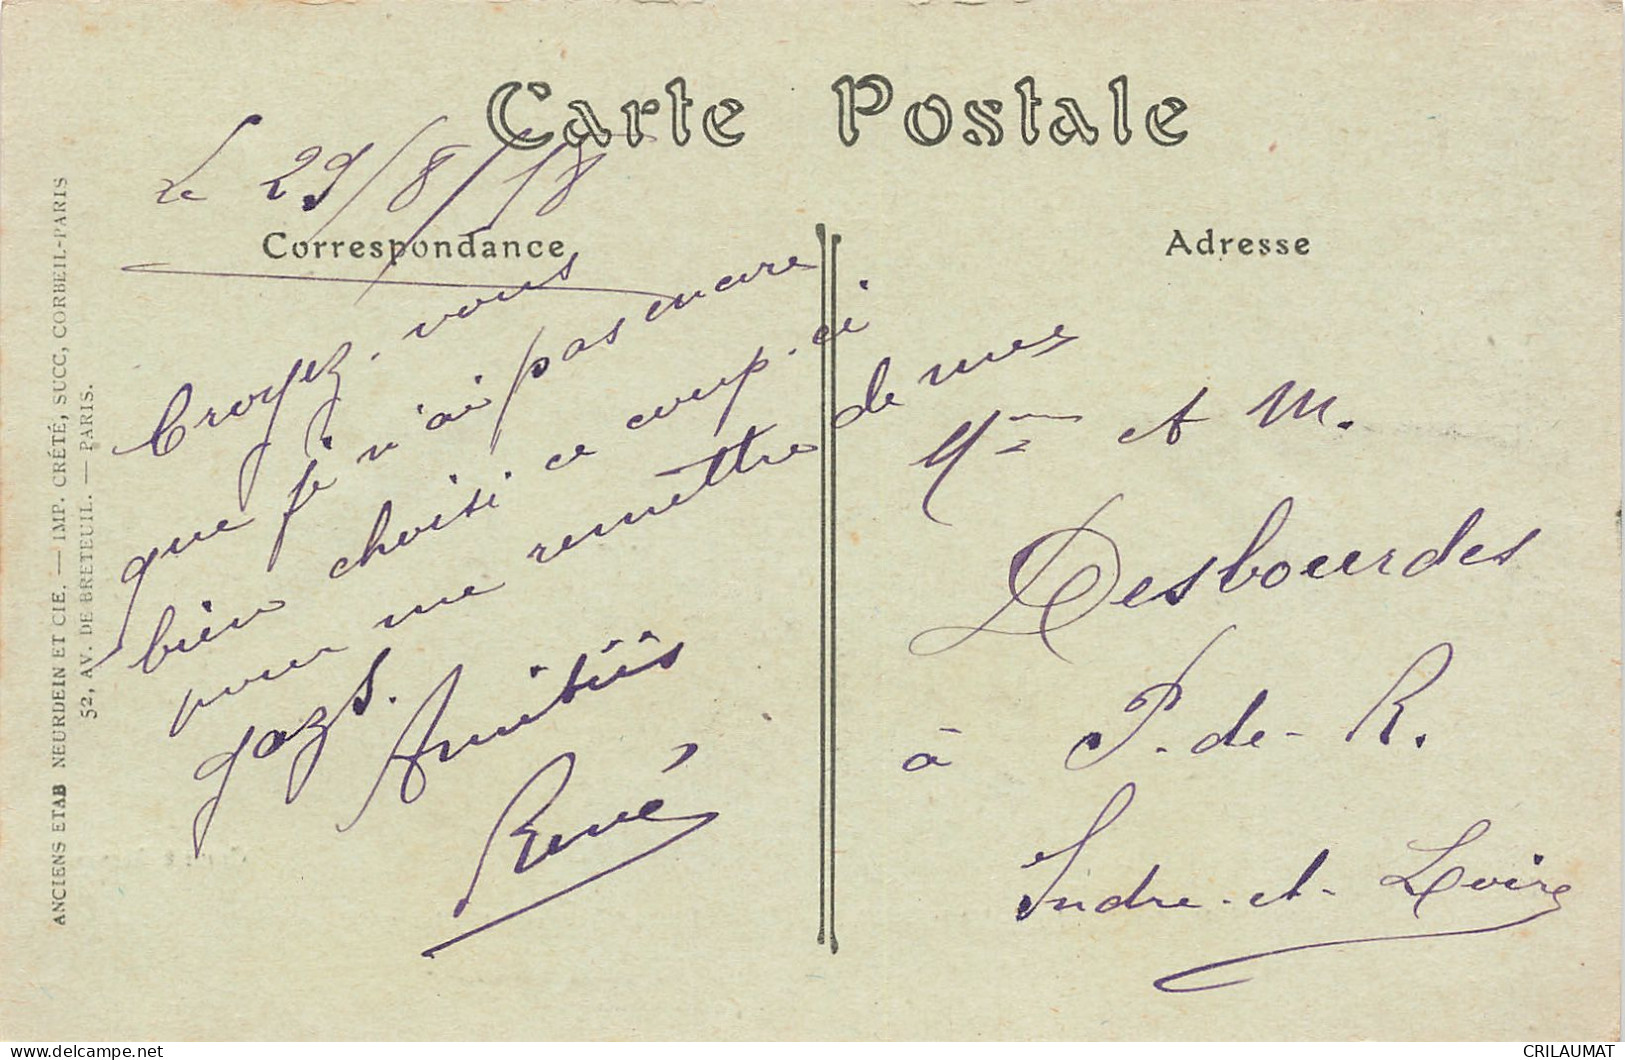 Carte Postale
Le 29/8/18
Correspondance
Croyez-vous
que je n'ai pas encore
bien choisi ce coup-ci
pour me remettre de mes
gazs. Amitiés
René
Adresse
Mme et M.
Desbourdes
à P-de-R.
Indre-et-Loire
ANCIENS ETAB NEURDEIN ET CIE. — IMP. CRÉTÉ, SUCC, CORBEIL-PARIS
52, AV. DE BRETEUIL. — PARIS.
delcampe.net
CRILAUMAT